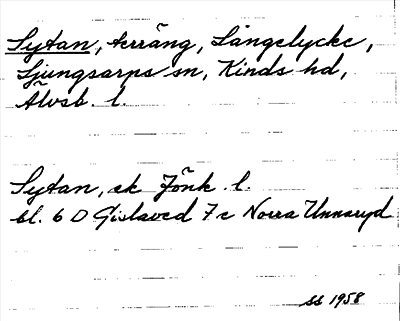 Sytan, terräng, Långelycke,
Ljungsarps sn, Kinds hd,
Älvsb. l.
Sytan, ek Jönk. l.
bl. 6 D Gislaved 7c Norra Unnaryd
SS 1958